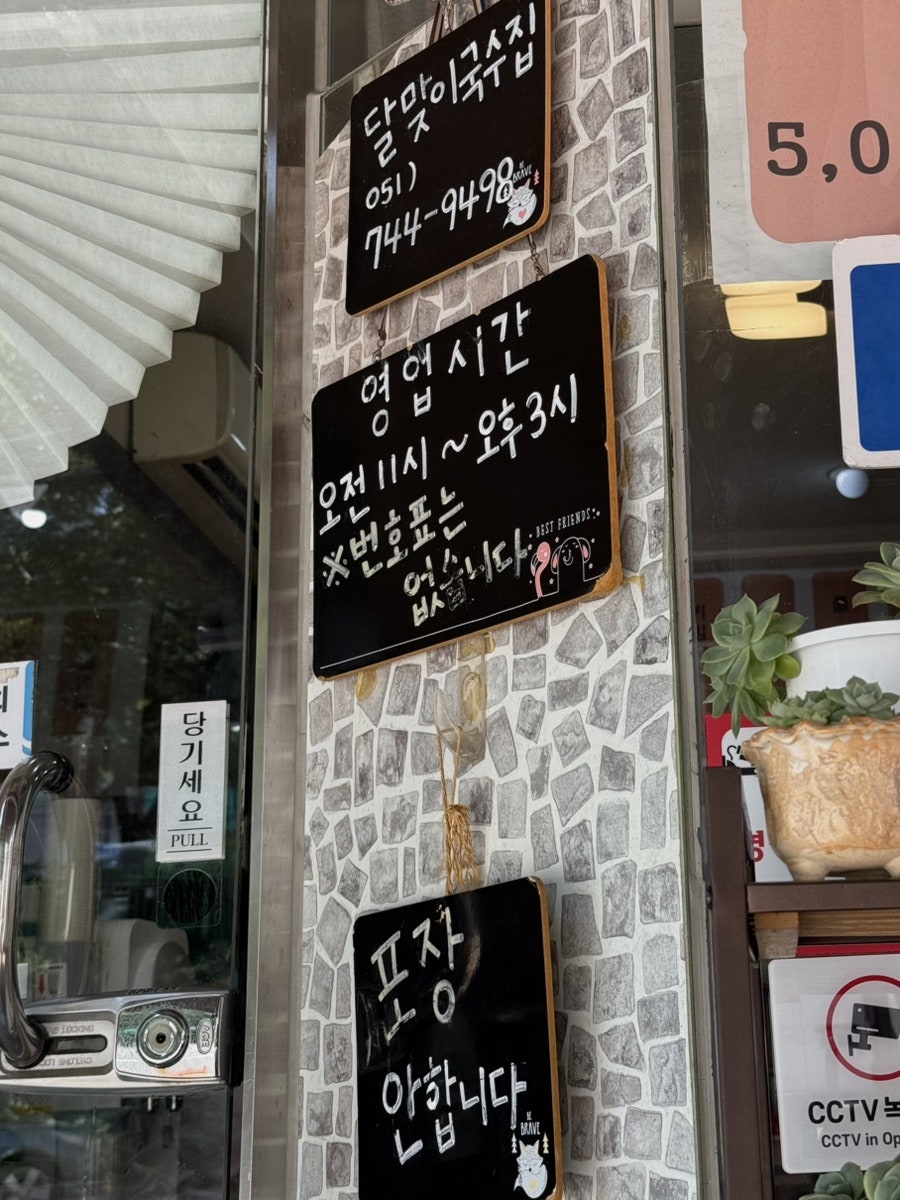 달맞이국수집
051)
744-9498
BE BRAVE
영업시간
오전 11시 ~ 오후 3시
※번호표는
없습니다
BEST FRIENDS
포장
안합니다
BE
BRAVE
당기세요
PULL
5,0
CCTV 녹
CCTV in Op